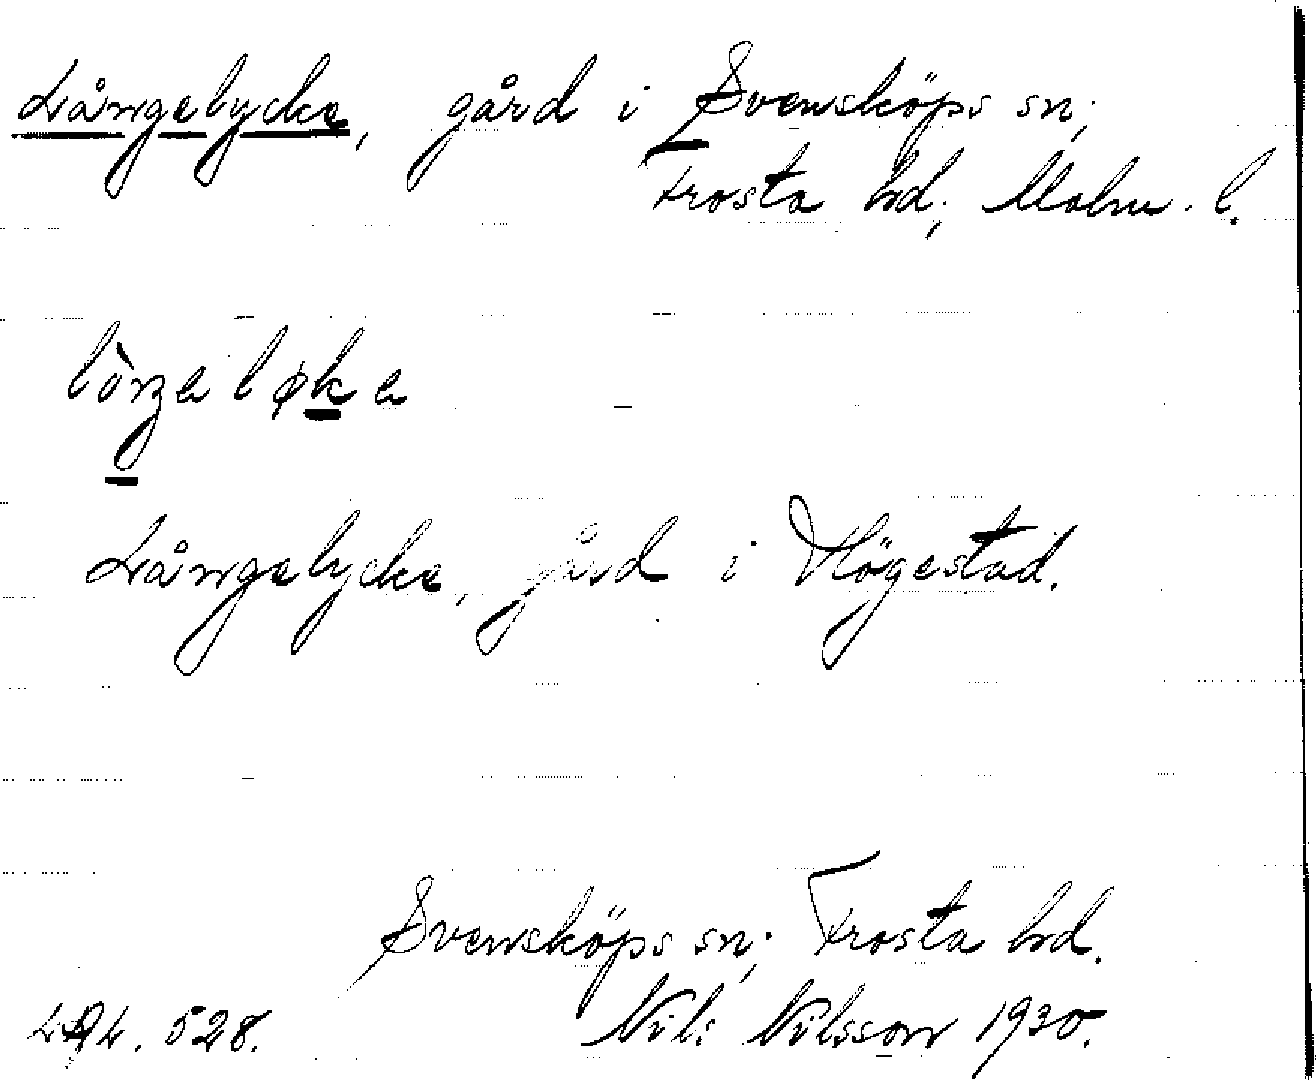 Långelycke, gård i Svensköps sn;
Frosta hd; Malm. l.
Långelycke, gård i Högestad.
Svensköps sn; Frosta hd.
528. Nils Nilsson 1930.